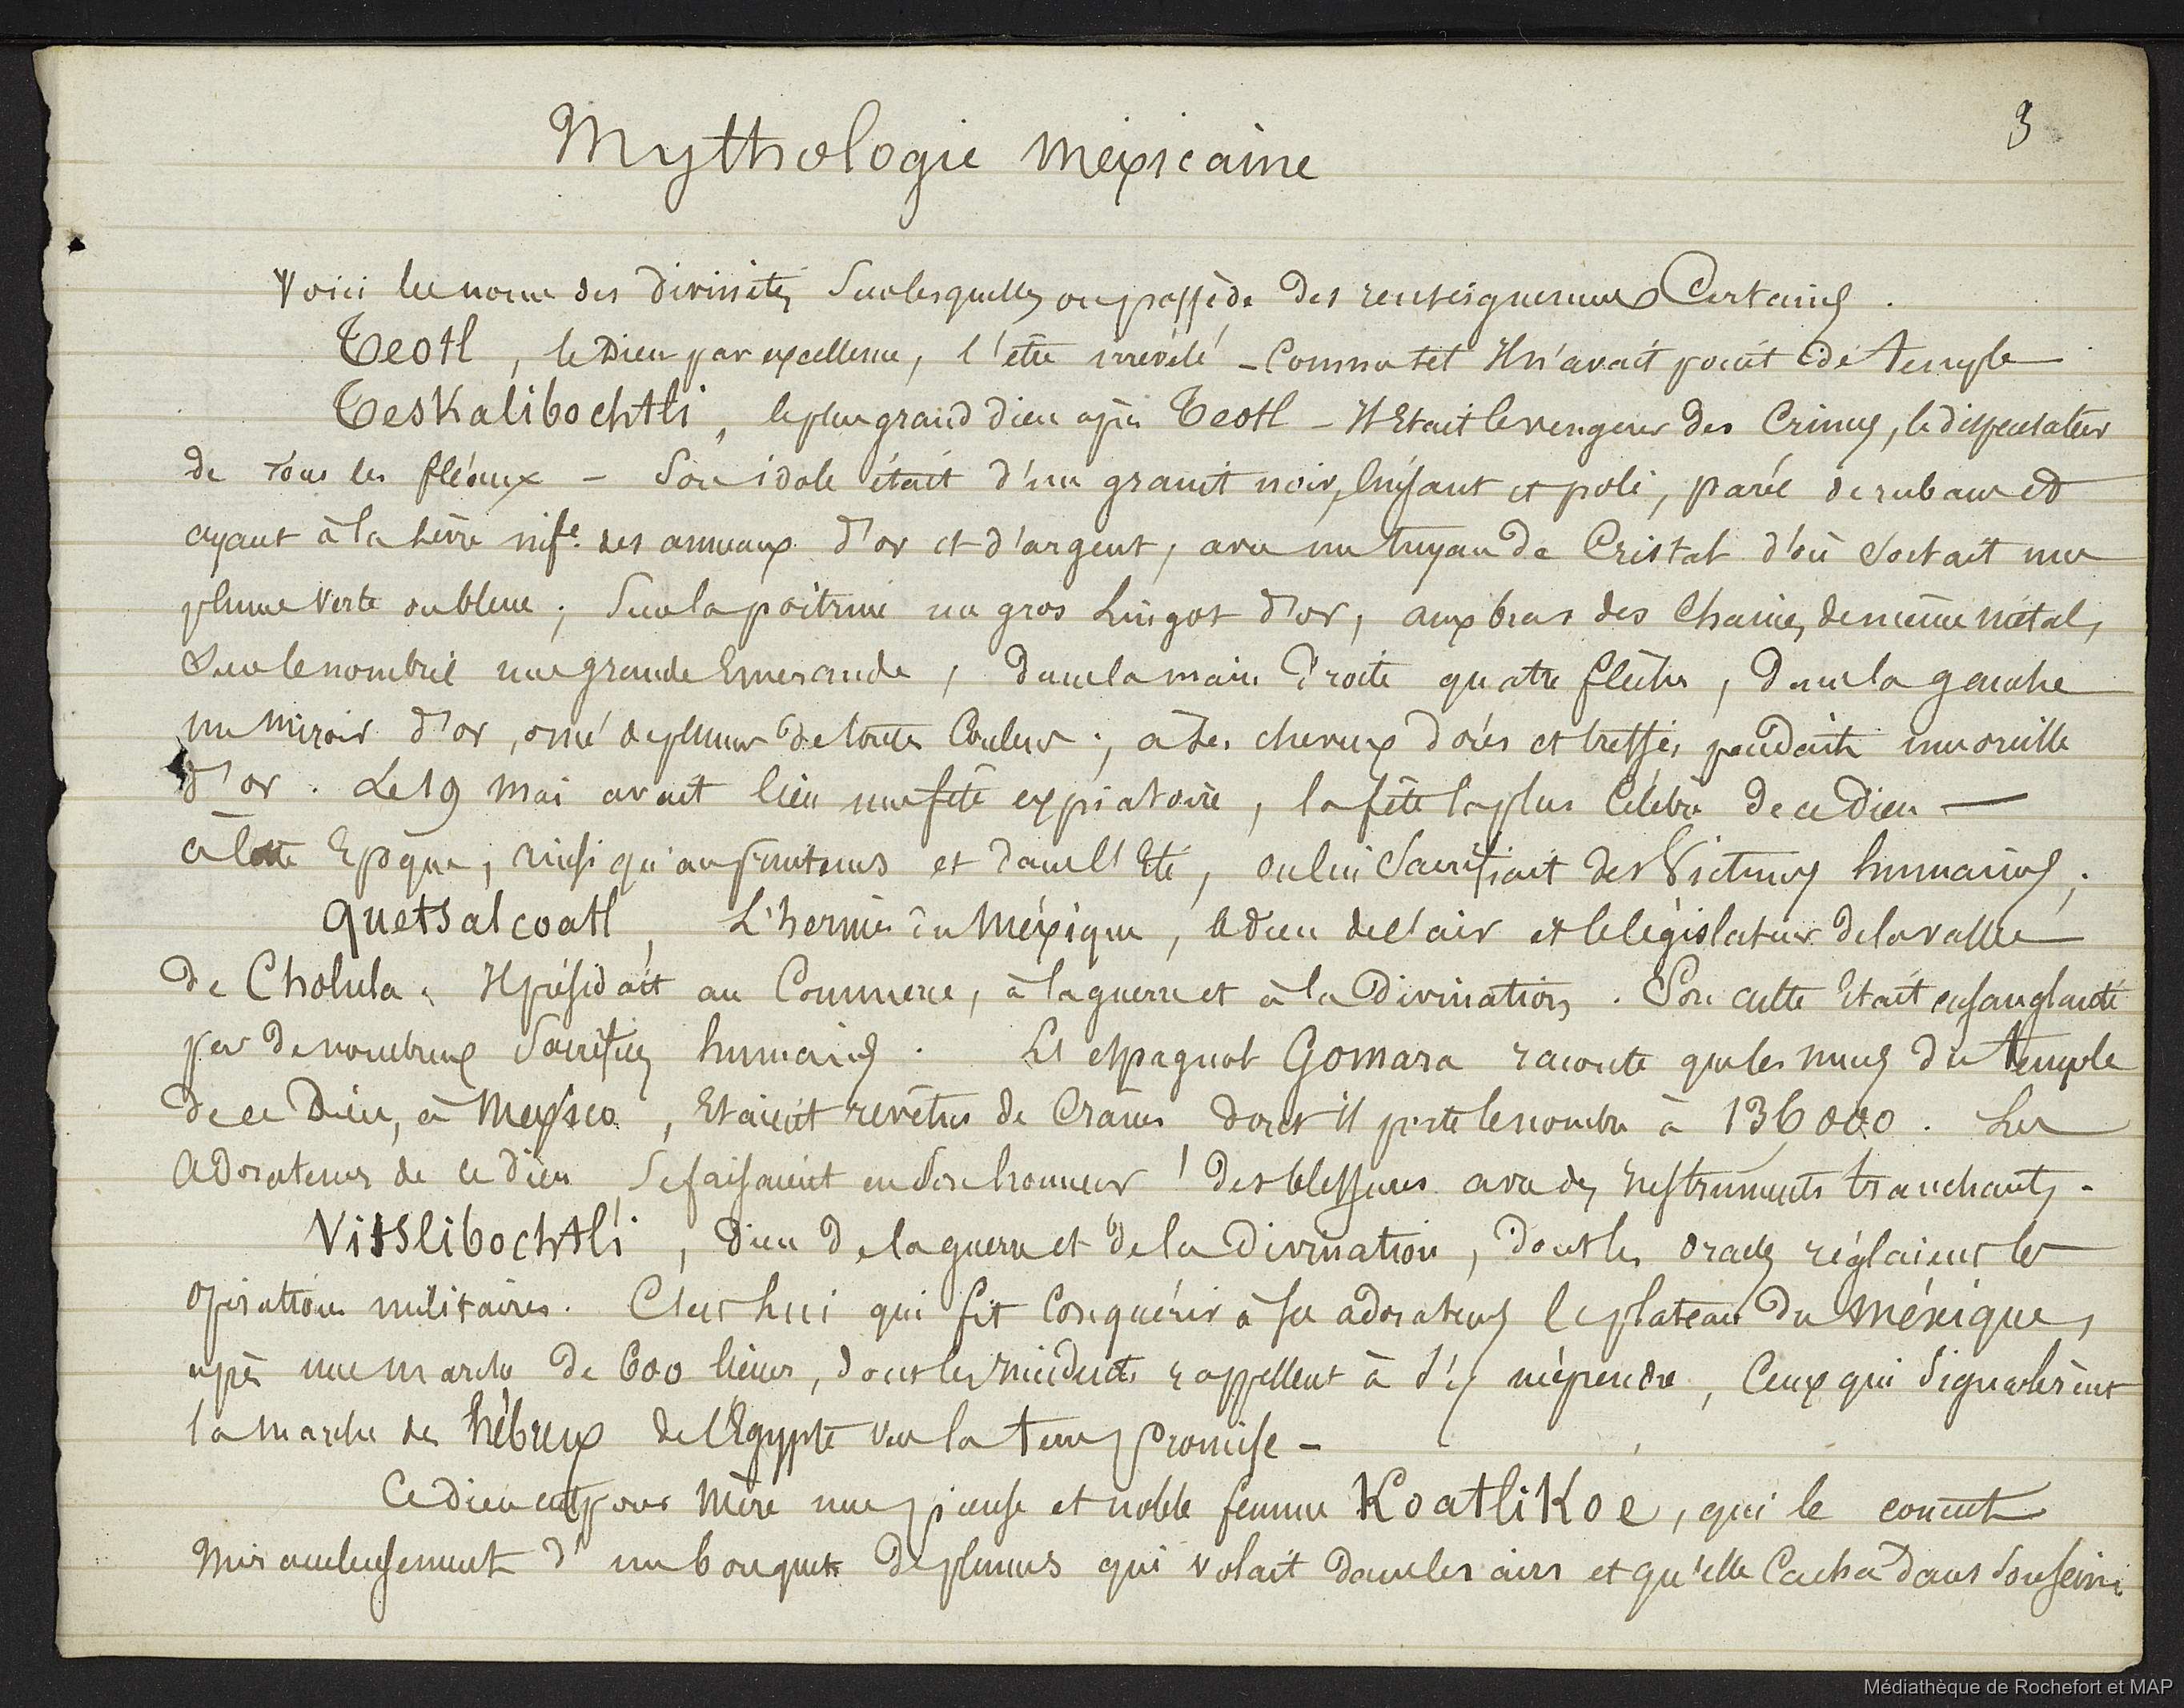 3
Mythologie mexicaine
Voici les noms des divinités sur lesquelles on possède des renseignements Certains.
Teotl, le Dieu par excellence, l'être irrévélé - Comme tel Il n'avait point de temple
Teskalibochtli, le plus grand dieu après Teotl - Il Etait le vengeur des Crimes, le dispensateur
de tous les fléaux - Son idole était d'un granit noir, luisant et poli, paré de rubans et
ayant à la lèvre infre. des anneaux d'or et d'argent, avec un tuyau de Cristal d'où Sortait une
plume Verte ou bleue ; Sur la poitrine un gros Lingot d'or, aux bras des Chaines de même métal,
Sur le nombril une grande Emeraude, Dans la main Droite quatre flèches, Dans la gauche
un Miroir d'or, orné de plumes de toutes Couleurs ; à Ses cheveux dorés et tressés pendait une oreille
d'or. Le 19 Mai avait lieu une fête expiatoire, la fête la plus Célèbre de ce Dieu -
à cette Epoque, ainsi qu'au printems et dans l'Eté, on lui Sacrifiait des Victimes humaines ;
Quetsalcoatl, L'hermès du Méxique, le dieu de l'air et le législateur de la vallée
de Cholula. Il présidait au Commerce, à la guerre et à la Divination. Son culte Etait ensanglanté
par de nombreux Sacrifices humains. L'espagnol Gomara raconte que les murs du temple
de ce Dieu, à Mexico, Etaient revêtus de Crânes dont il porte le nombre à 136000. Les
adorateurs de ce dieu, Se faisaient en Son honneur des blessures avec des Instruments tranchants.
Vitslibochtli, Dieu de la guerre et de la Divination, dont les oracles réglaient les
opérations militaires. C'est Lui qui fit Conquérir à ses adorateurs le plateau du Méxique,
après une marche de 600 lieues, dont les incidents rappellent à S'y méprendre, Ceux qui Signalèrent
la marche des hébreux de l'Egypte vers la terre promise -
Ce dieu eut pour Mère une pieuse et noble femme KoatliKoe, qui le conçut
Miraculeusement d'un bouquet de plumes qui volait dans les airs et qu'elle Cacha dans Son sein.
Médiathèque de Rochefort et MAP